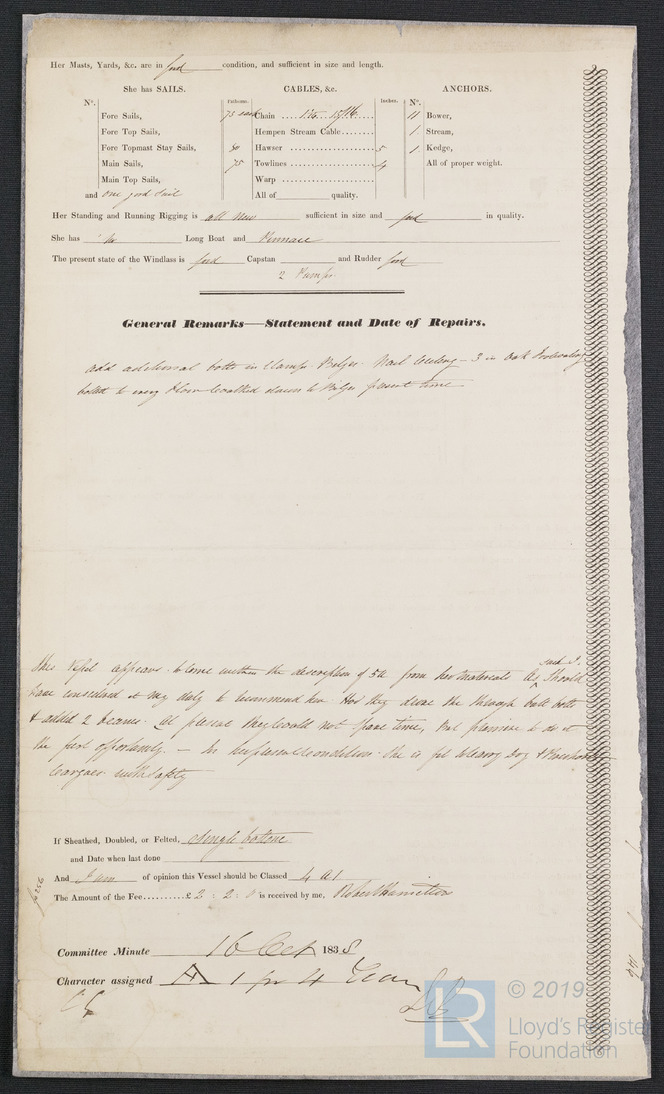 Her Masts, Yards, &c. are in good condition, and sufficient in size and length.
She has SAILS.
CABLES, &c.
ANCHORS.
Nº.
Fathoms.
Inches.
Nº.
Fore Sails,
Chain
Bower,
Fore Top Sails,
Hempen Stream Cable........
1 Stream,
Fore Topmast Stay Sails,
Hawser .................... 5
1 Kedge,
Main Sails,
75 Towlines .................... 4
All of proper weight.
Main Top Sails,
Warp ......................
and One good Sail
All of quality.
Her Standing and Running Rigging is all New sufficient in size and good in quality.
She has Long Boat and Pinnace
The present state of the Windlass is good Capstan and Rudder good
2 Pumps
General Remarks—Statement and Date of Repairs.
add additional bolts in Clamps Bilges 3 in Oak
bolted to every Floor Caulked down to Bilges present time
This Vessel appears to come within the description of 5A from her materials As such I Should
have considered it my duty to recommend her Had they drove the through bolts
& added 2 beams. At present they could not spare time, but promise to do it
the first opportunity. — In her present Condition She is fit to Carry Dry &
Cargoes with Safety
If Sheathed, Doubled, or Felted, Single bottom
and Date when last done
And I am of opinion this Vessel should be Classed 4 A1
The Amount of the Fee..........£2 : 2 : 0 is received by me, Robert Hamilton
Committee Minute 16 Oct 1838
Character assigned A 1 for 4 Years
LR
© 2019
Lloyd's Register
Foundation